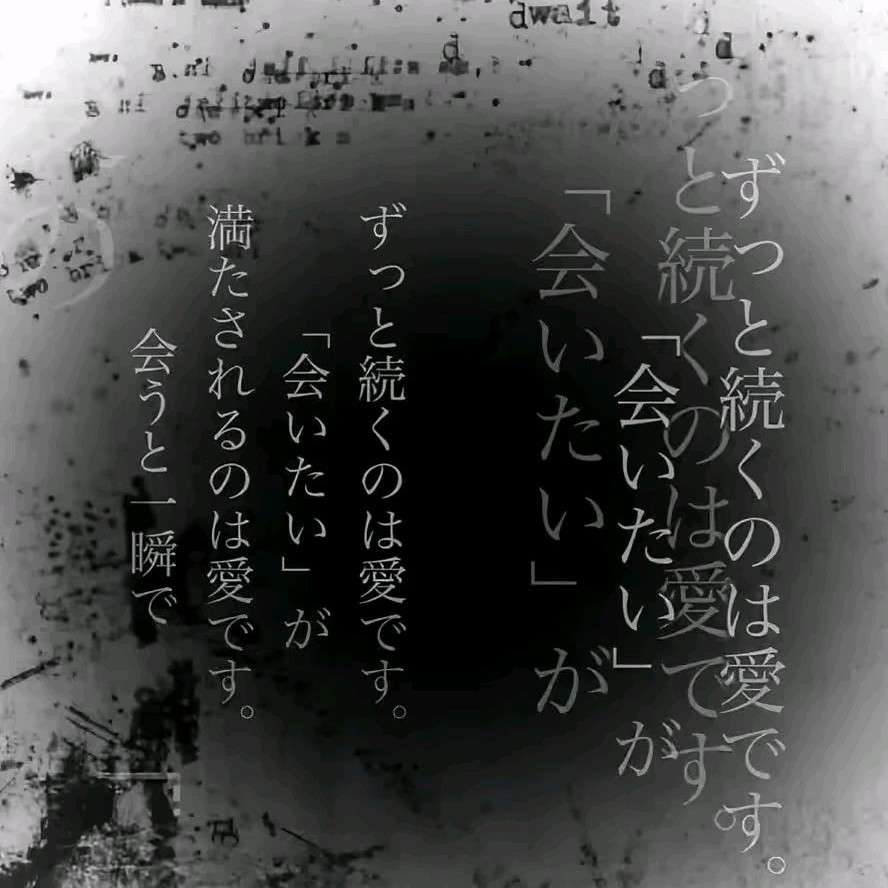 ずっと続くのは愛です。
「会いたい」が
っと続くのは愛です。
「会いたい」が
ずっと続くのは愛です。
「会いたい」が
満たされるのは愛です。
会うと一瞬で
の
dwait
two bri k
two bri